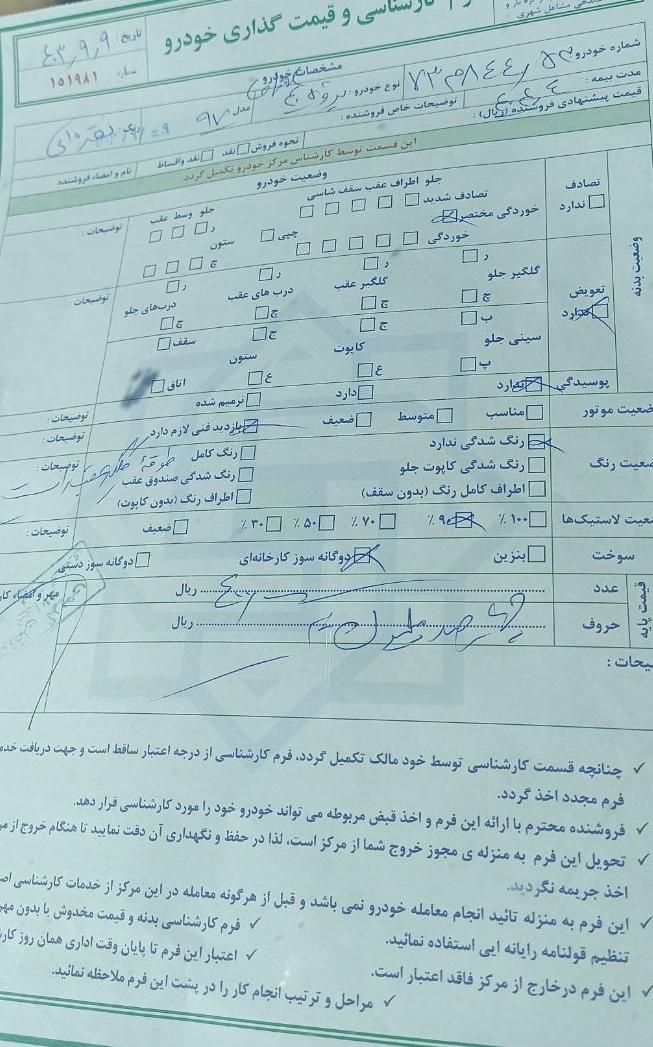 کارشناسی و قیمت گذاری خودرو
تاریخ: ۴۰۳٫۹٫۹
شماره ۱۵۱۹۸۱
مشخصات خودرو
شماره خودرو:
نوع خودرو:
مدل ۹۷
مدت بیمه:
توضیحات خاص فروشنده:
قیمت پیشنهادی فروشنده (ریال):
نحوه فروش: نقد نقد واقساط
نام و امضاء فروشنده
این قسمت توسط کارشناس مرکز خودرو تکمیل گردد.
وضعیت خودرو
وضعیت بدنه
تصادف ندارد
جلو اطراف عقب سقف شاسی
تصادف شدید
خوردگی مختصر
خوردگی
چپی
جلو وسط عقب
ر
ستون
چ
توضیحات:
تعویض ندارد
گلگیر جلو ر چ
گلگیر عقب ر چ
درب های عقب ر چ
درب‌های جلو ر چ
توضیحات:
سینی جلو ب پ
کاپوت ج ع
ستون ج ع
سقف
اتاق
پوسیدگی ندارد دارد ترمیم شده
توضیحات:
ضعیت موتور مناسب متوسط ضعیف بازدید فنی لازم دارد
توضیحات:
ضعیت رنگ
رنگ شدگی ندارد رنگ کامل
رنگ شدگی کاپوت جلو رنگ شدگی صندوق عقب
اطراف کامل رنگ (بدون سقف) اطراف رنگ (بدون کاپوت)
توضیحات:
ضعیت لاستیک‌ها ۱۰۰٪ ۹۰٪ ۷۰٪ ۵۰٪ ۳۰٪ ضعیف
توضیحات:
سوخت بنزین دوگانه سوز کارخانه‌ای دوگانه سوز دستی
قیمت پایه
عدد ریال
حروف چهارصد میلیون ریال
مهر و امضاء کا
یحات:
✓ چنانچه قسمت کارشناسی توسط خود مالک تکمیل گردد، فرم کارشناسی از درجه اعتبار ساقط است و جهت دریافت خدم
فرم مجدد اخذ گردد.
✓ فروشنده محترم با ارائه این فرم و اخذ قبض مربوطه می تواند خودرو خود را مورد کارشناسی قرار دهد.
✓ تحویل این فرم به منزله ی مجوز خروج شما از مرکز است، لذا در حفظ و نگهداری آن دقت نمایید تا هنگام خروج از مر
اخذ جریمه نگردید.
✓ این فرم به منزله تائید انجام معامله خودرو نمی باشد و قبل از هرگونه معامله در این مرکز از خدمات کارشناسی اص
تنظیم قولنامه رایانه ایی استفاده نمائید.
✓ فرم کارشناسی بدنه و قیمت مخدوش یا بدون مهر
✓ این فرم درخارج از مرکز فاقد اعتبار است.
✓ اعتبار این فرم تا پایان وقت اداری همان روز کار
✓ مراحل و ترتیب انجام کار را در پشت این فرم ملاحظه نمائید.